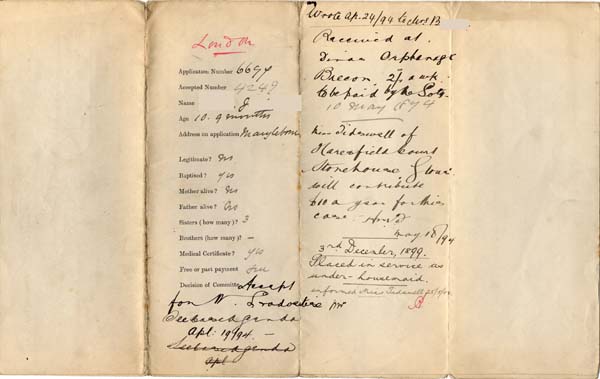 London
Application Number 6694
Accepted Number 4249
Name J
Age 10. 9 months
Address on application Marylebone
Legitimate? No
Baptised? yes
Mother alive? No
Father alive? No
Sisters (how many)? 3
Brothers (how many)? –
Medical Certificate? yes
Free or part payment free
Decision of Committee Accept
for N.
See
Apl: 19/94 –
Apl
Wrote Ap. 24/94 to Mrs B
Received at
Dinan Orphanage
Brecon. 2/. a wk
to be paid by the Soty.
10 May 1894
Miss Tidswell of
Haresfield Court
Stonehouse Glouc
will contribute
£10 a year for this
case.
May 18/94
3rd December, 1899.
Placed in service as
under-housemaid.
informed Miss Tidswell